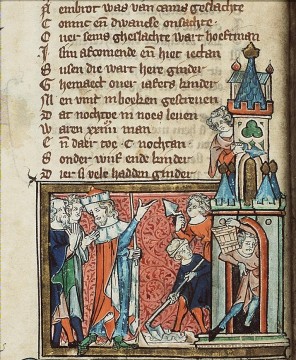 N embrot was van cams geslachte
C eñ dwanese onsachte
O uer sems gheslachte wart hoeftman
J afcomende eñ hiet iectan
S usen die wart here ginder
G hemaect ouer iafets kinder
M en vint in boeken gescreuen
D at nochtoe in noes leuen
W aren man
E ñ daer toe .C. nochtan
S onder wijf ende kinder
D ier si vele hadden ginder